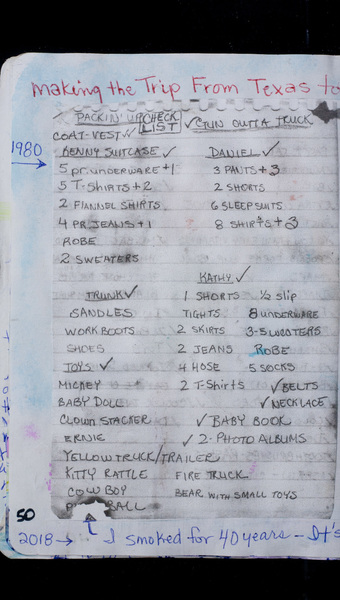 Making the Trip From Texas to
PACKIN' UP CHECK LIST ✓ GUN OUTTA TRUCK
COAT-VEST ✓✓
1980
BENNY SUITCASE ✓
5 pr. UNDERWARE +1
5 T-SHIRTS + 2
2 FLANNEL SHIRTS
4 PR JEANS + 1
ROBE
2 SWEATERS
DANIEL ✓
3 PANTS + 3
2 SHORTS
6 SLEEP SUITS
8 SHIRTS + 3
TRUNK ✓
SANDLES
WORK BOOTS
SHOES
KATHY ✓
1 SHORTS ½ slip
TIGHTS 8 UNDERWARE
2 SKIRTS 3-SWEATERS
2 JEANS ROBE
4 HOSE 5 SOCKS
2 T-SHIRTS ✓ BELTS
✓ NECKLACE
✓ BABY BOOK
✓ 2-PHOTO ALBUMS
TOYS ✓
MICKEY
BABY DOLL
CLOWN STACKER
ERNIE
YELLOW TRUCK/TRAILER
KITTY RATTLE FIRE TRUCK
COWBOY BEAR WITH SMALL TOYS
BALL
50
2018 → I smoked for 40 years - It's